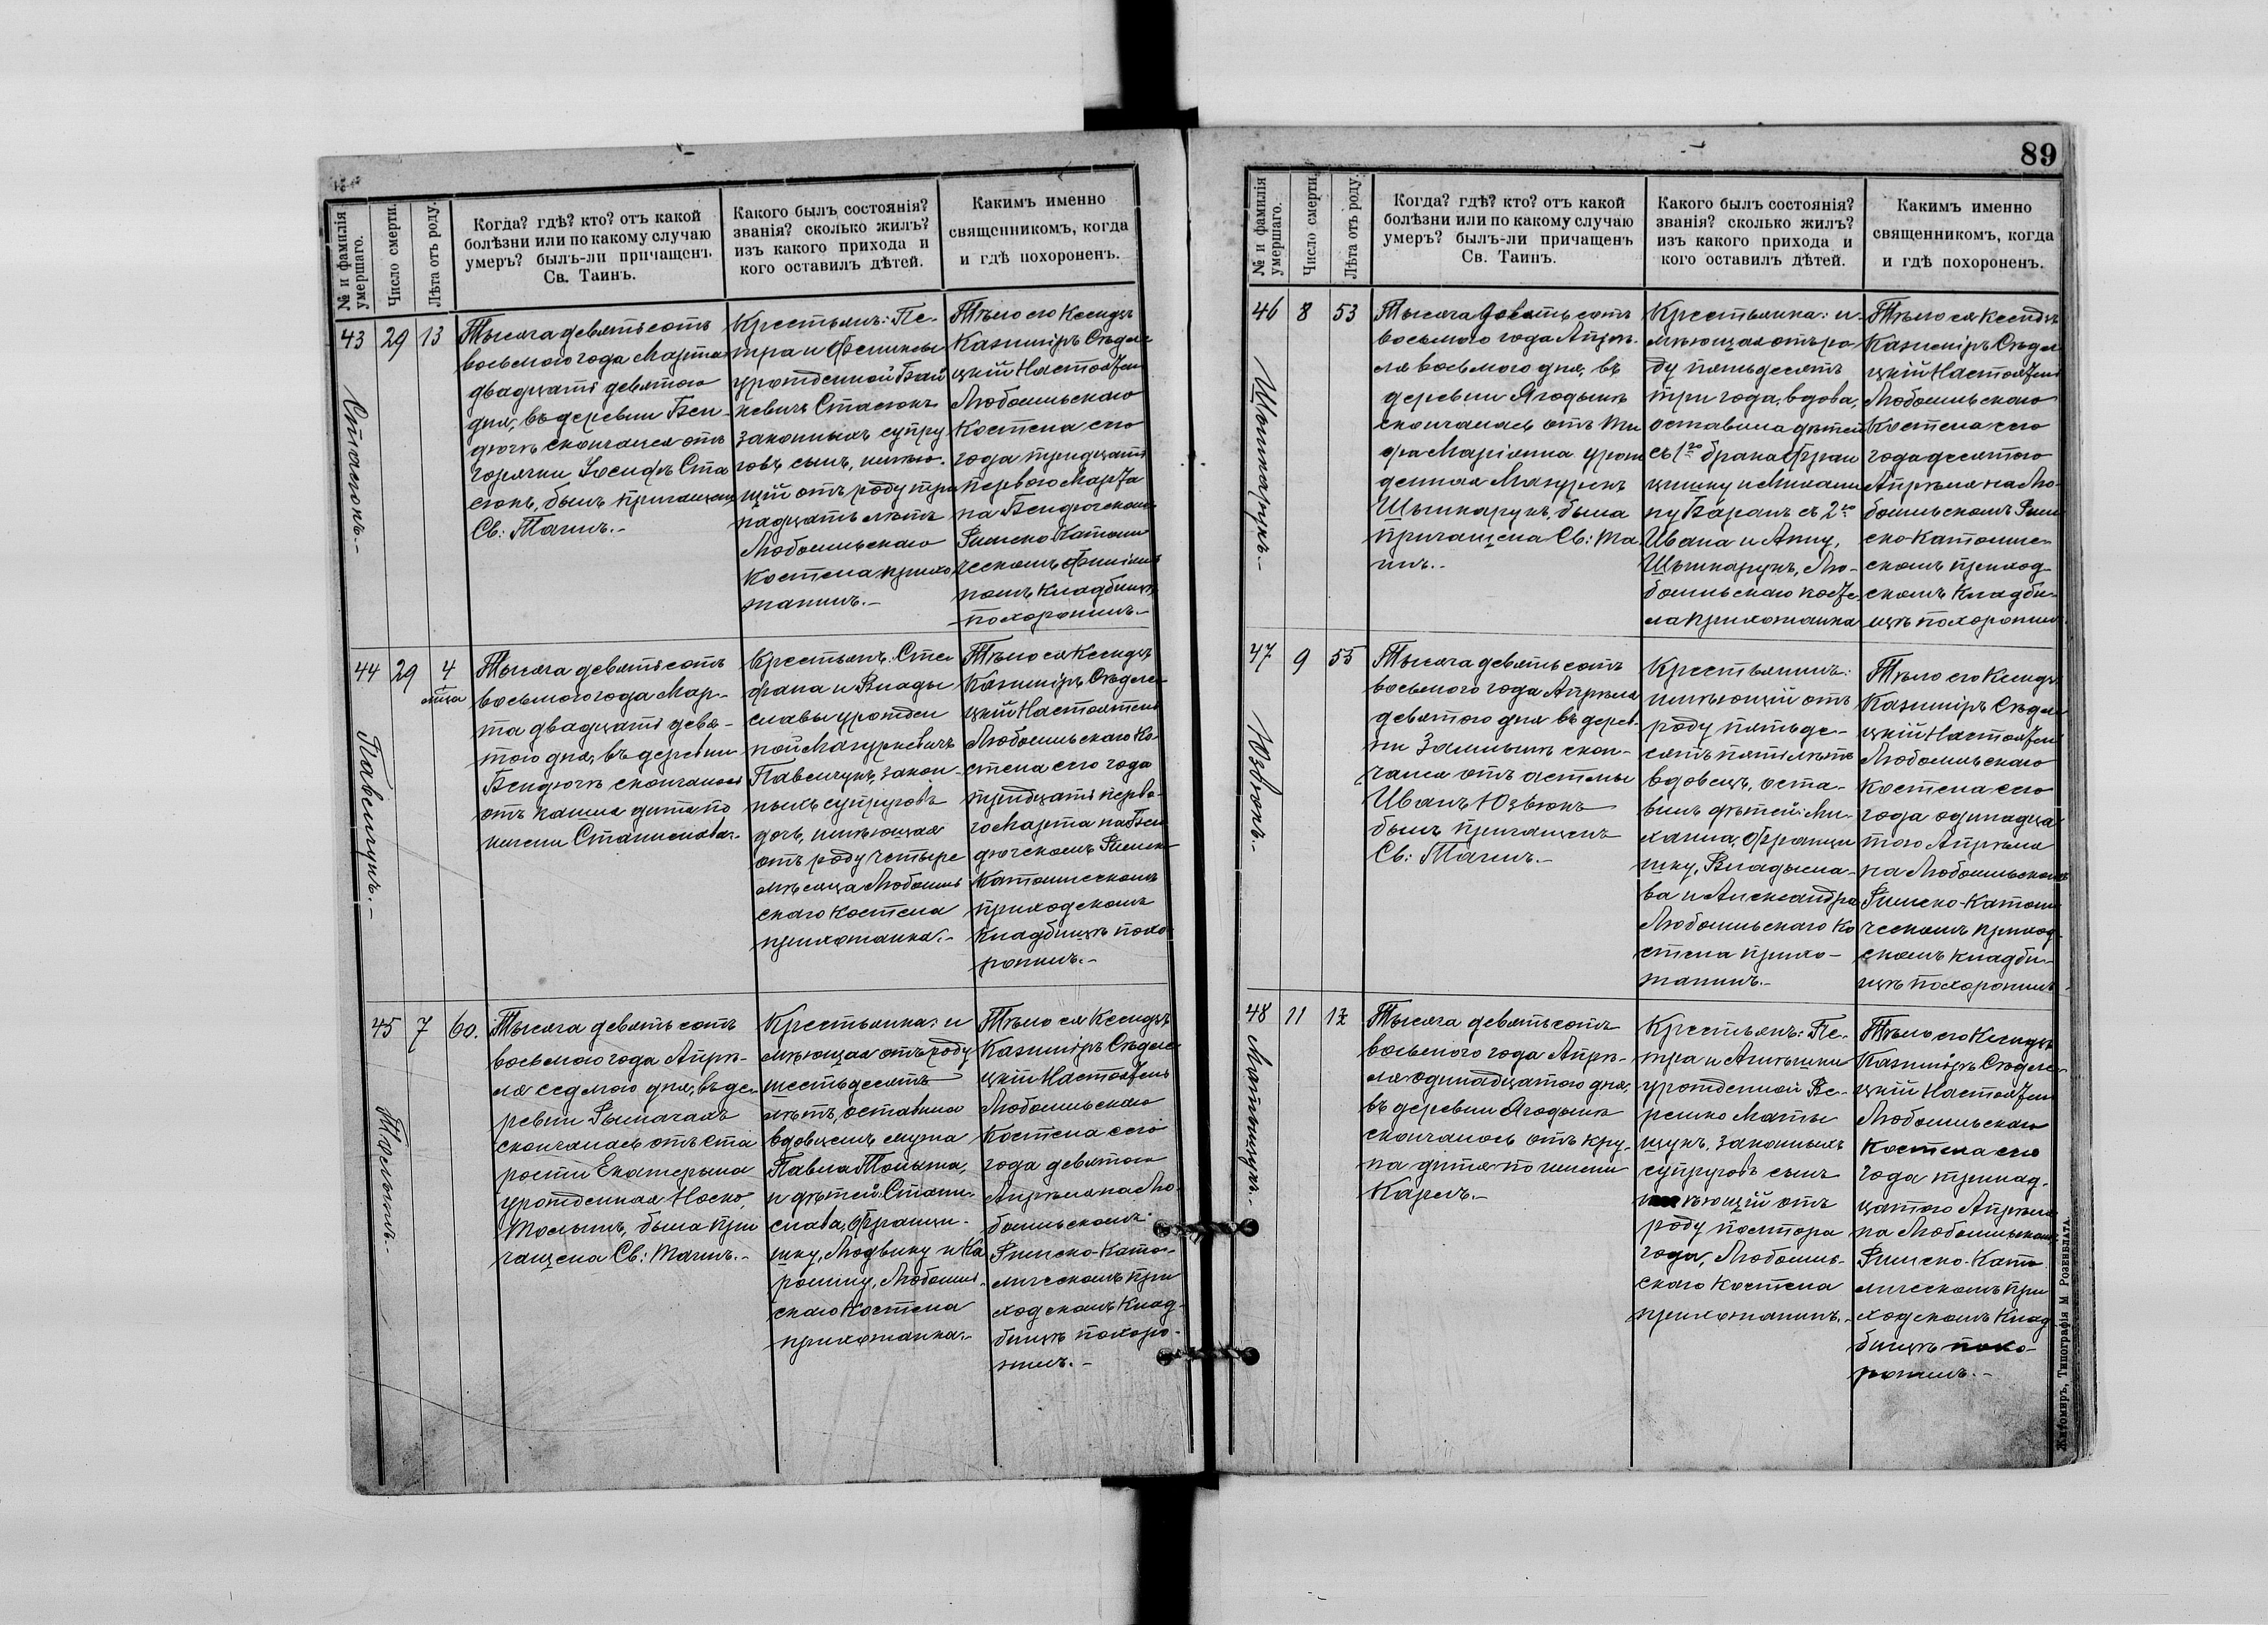 № и фамилія умершаго.
Число смерти.
Лѣта отъ роду.
Когда? гдѣ? кто? отъ какой
болѣзни или по какому случаю
умеръ? былъ-ли причащенъ
Св. Таинъ.
Какого былъ состоянія?
званія? сколько жилъ?
изъ какого прихода и
кого оставилъ дѣтей.
Какимъ именно
священникомъ, когда
и гдѣ похороненъ.
43
Стасюкъ.-
29
13
Тысяча девятьсотъ
восьмого года Марта
двадцать девятого
дня, въ деревни Бен-
дюгѣ скончался отъ
горячки Іосифъ Ста
сюкъ, былъ причащенъ
Св: Таинъ.-
Крестьянъ: Пе-
тра и Феликсы
урожденной Бай
кевичъ Стасюкъ
законныхъ супру
говъ сынъ, имѣю-
щій отъ роду три
надцать лѣтъ
Любомльскаго
костела прихо
жанинъ.-
Тѣло его Ксендзъ
Казиміръ Сѣдле-
цкій Настоятель
Любомльскаго
костела сего
года тридцать
первого Марта
на Бендюгскомъ
Римско Католи
ческомъ филіаль
номъ кладбищѣ
похоронилъ.-
44
Павельчукъ.-
29
4
мѣсца
Тысяча девятьсотъ
восьмого года Мар-
та двадцать девя-
того дня, въ деревни
Бендюгѣ скончалось
отъ кашля дитя по
имени Станислава.-
Крестьянъ: Сте
фана и Влади
славы урожден
ной Мазуркевичъ
Павельчукъ, закон-
ныхъ супруговъ
дочь, имѣющая
отъ роду четыре
мѣсяца Любомль
скаго костела
прихожанка.-
Тѣло ея Ксендзъ
Казиміръ Сѣдле-
цкій Настоятель
Любомльскаго Ко-
стела сего года
тридцать перво-
го Марта на Бен
дюгскомъ Римско
Католическомъ
приходскомъ
кладбищѣ похо
ронилъ.-
45
7
60.
Тысяча девятьсотъ
восьмого года Апрѣ-
ля седмого дня, въ де-
ревни Рымачахъ
скончалась отъ ста
рости Екатерина
урожденная Носко,
была при
чащена Св: Таинъ.-
Крестьянка: и
мѣющая отъ роду
шестьдесятъ
лѣтъ, оставила
вдовцемъ мужа
Павла
и дѣтей: Стани-
слава, Франци-
шку, Людвику и Ка
ролину, Любомль-
скаго костела
прихожанка.-
Тѣло ея Ксендзъ
Казиміръ Сѣдле-
цкій Настоятель
Любомльскаго
костела сего
года девятого
Апрѣля на Лю-
бомльскомъ
Римско-Като-
лическомъ при
ходскомъ клад-
бищѣ похоро-
нилъ.-
89
№ и фамилія умершаго.
Число смерти.
Лѣта отъ роду.
Когда? гдѣ? кто? отъ какой
болѣзни или по какому случаю
умеръ? былъ-ли причащенъ
Св. Таинъ.
Какого былъ состоянія?
званія? сколько жилъ?
изъ какого прихода и
кого оставилъ дѣтей.
Какимъ именно
священникомъ, когда
и гдѣ похороненъ.
46
Шынкарукъ.-
8
53
Тысяча девятьсотъ
восьмого года Апрѣ-
ля восьмого дня, въ
деревни Ягодынѣ
скончалась отъ ти
фа Маріанна урож
денная Мазурекъ
Шынкарукъ, была
причащена Св: Та-
инъ.-
Крестьянка: и-
мѣющая отъ ро-
ду пятьдесятъ
три года, вдова,
оставила дѣтей
съ 1го брака Фран
цишку и Михали
ну Баранъ съ 2го
Ивана и Анну,
Шынкарукъ, Лю-
бомльскаго косте-
ла прихожанка
Тѣло ея Ксендзъ
Казиміръ Сѣдле
цкій Настоятель
Любомльскаго
костела сего
года десятого
Апрѣля на Лю-
бомльскомъ Рим
ско-Католиче-
скомъ приход-
скомъ кладби-
щѣ похоронилъ
47
Юзвюкъ.-
9
55
Тысяча девятьсотъ
восьмого года Апрѣля
девятого дня въ дерев-
ни Замлыньѣ скон-
чался отъ астмы
Иванъ Юзвюкъ
былъ причащенъ
Св: Таинъ.-
Крестьянинъ:
имѣющій отъ
роду пятьде-
сятъ пять лѣтъ
вдовецъ, оста-
вилъ дѣтей: Ми-
хаила, Францы
шку, Владысла-
ва и Александра
Любомльскаго Ко
стела прихо-
жанинъ.-
Тѣло его Ксендзъ
Казиміръ Сѣдле
цкій Настоятель
Любомльскаго
костела сего
года одинадца
того Апрѣля
на Любомльскомъ
Римско-Католи
ческомъ приход-
скомъ кладби-
щѣ похоронилъ
48
Матыщукъ.-
11
1½
Тысяча девятьсотъ
восьмого года Апрѣ-
ля одинадцатого дня,
въ деревни Ягодынѣ
скончалось отъ кру-
па дитя по имени
Карлъ.-
Крестьянъ: Пе-
тра и Агнѣшки
урожденной Ве-
ремко Маты
щукъ, законныхъ
супруговъ сынъ
имѣющій отъ
роду полтора
года, Любомль-
скаго костела
прихожанинъ.-
Тѣло его Ксендзъ
Казиміръ Сѣдле-
цкій Настоятель
Любомльскаго
костела сего
года тринад-
цатого Апрѣля
на Любомльскомъ
Римско-Като
лическомъ при
ходскомъ клад
бищѣ похо-
ронилъ.-
Житомиръ, Типографія М. Розенблата.